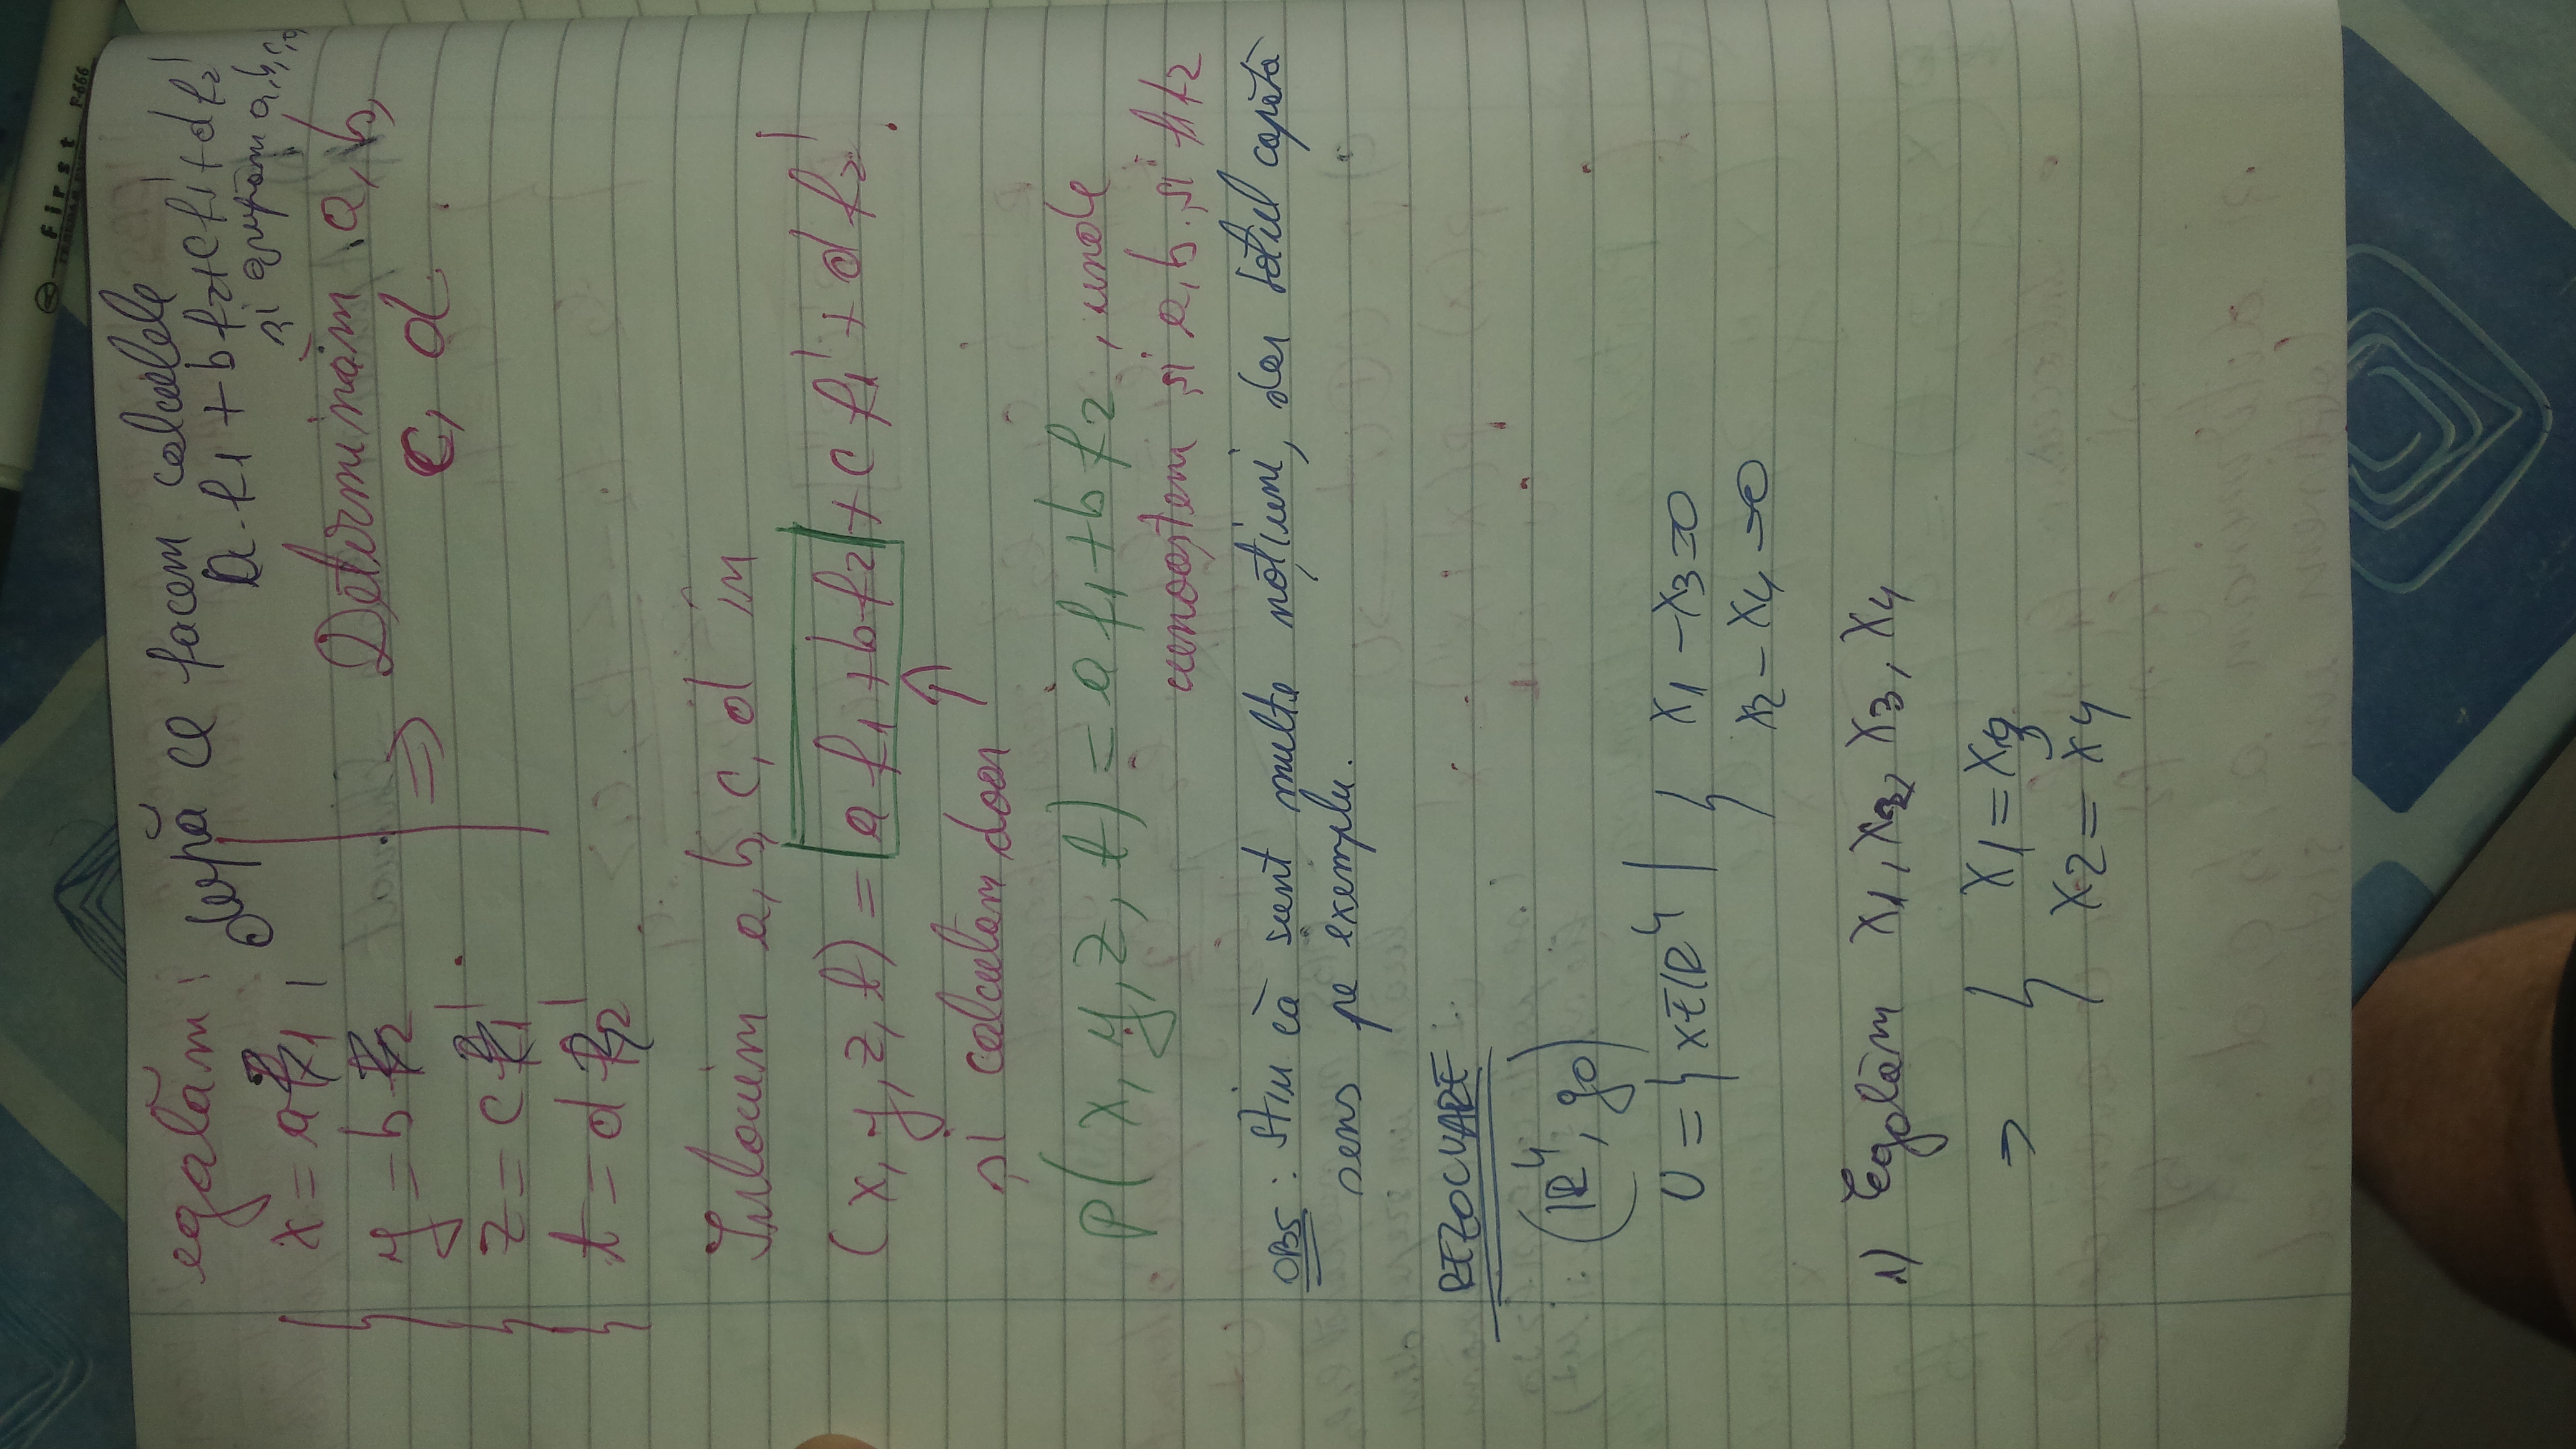 First
F-666
egalăm: după ce facem calculele
a.f1 + bf2+cf1'+df2'
și grupăm a,b,c,d
x = a
y = b
z = c
t = d
=> Determinăm a, b,
c, d.
Inlocuim a, b, c, d în
(x, y, z, t) = a f1 + b f2 + c f1' + d f2'.
și calculăm doar ↑
P(x, y, z, t) = a f1 + b f2, unde
cunoaștem și a, b. și f1 f2
OBS: Stiu că sunt multe noțiuni, dar totul capătă
sens pe exemplu.
REZOLVARE:
(IR⁴, g0)
U = { x∈IR⁴ | { x1 - x3 = 0
x2 - x4 = 0
1) Egalăm x1, x2, x3, x4
=> { x1 = x3
x2 = x4